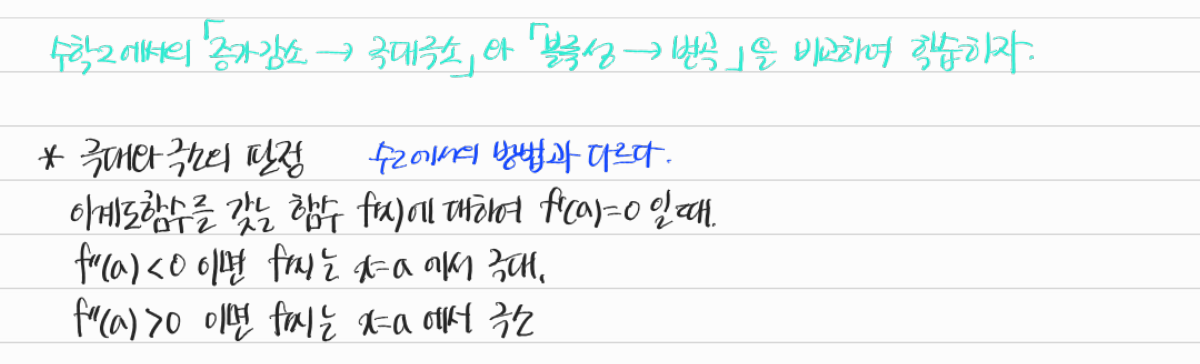 수학2에서의 「증가감소 → 극대극소」와 「볼록성 → 변곡」을 비교하여 학습하자.
* 극대와 극소의 판정 수2에서의 방법과 다르다.
이계도함수를 갖는 함수 f(x)에 대하여 f'(a)=0 일때.
f''(a)<0 이면 f(x)는 x=a 에서 극대,
f''(a)>0 이면 f(x)는 x=a 에서 극소